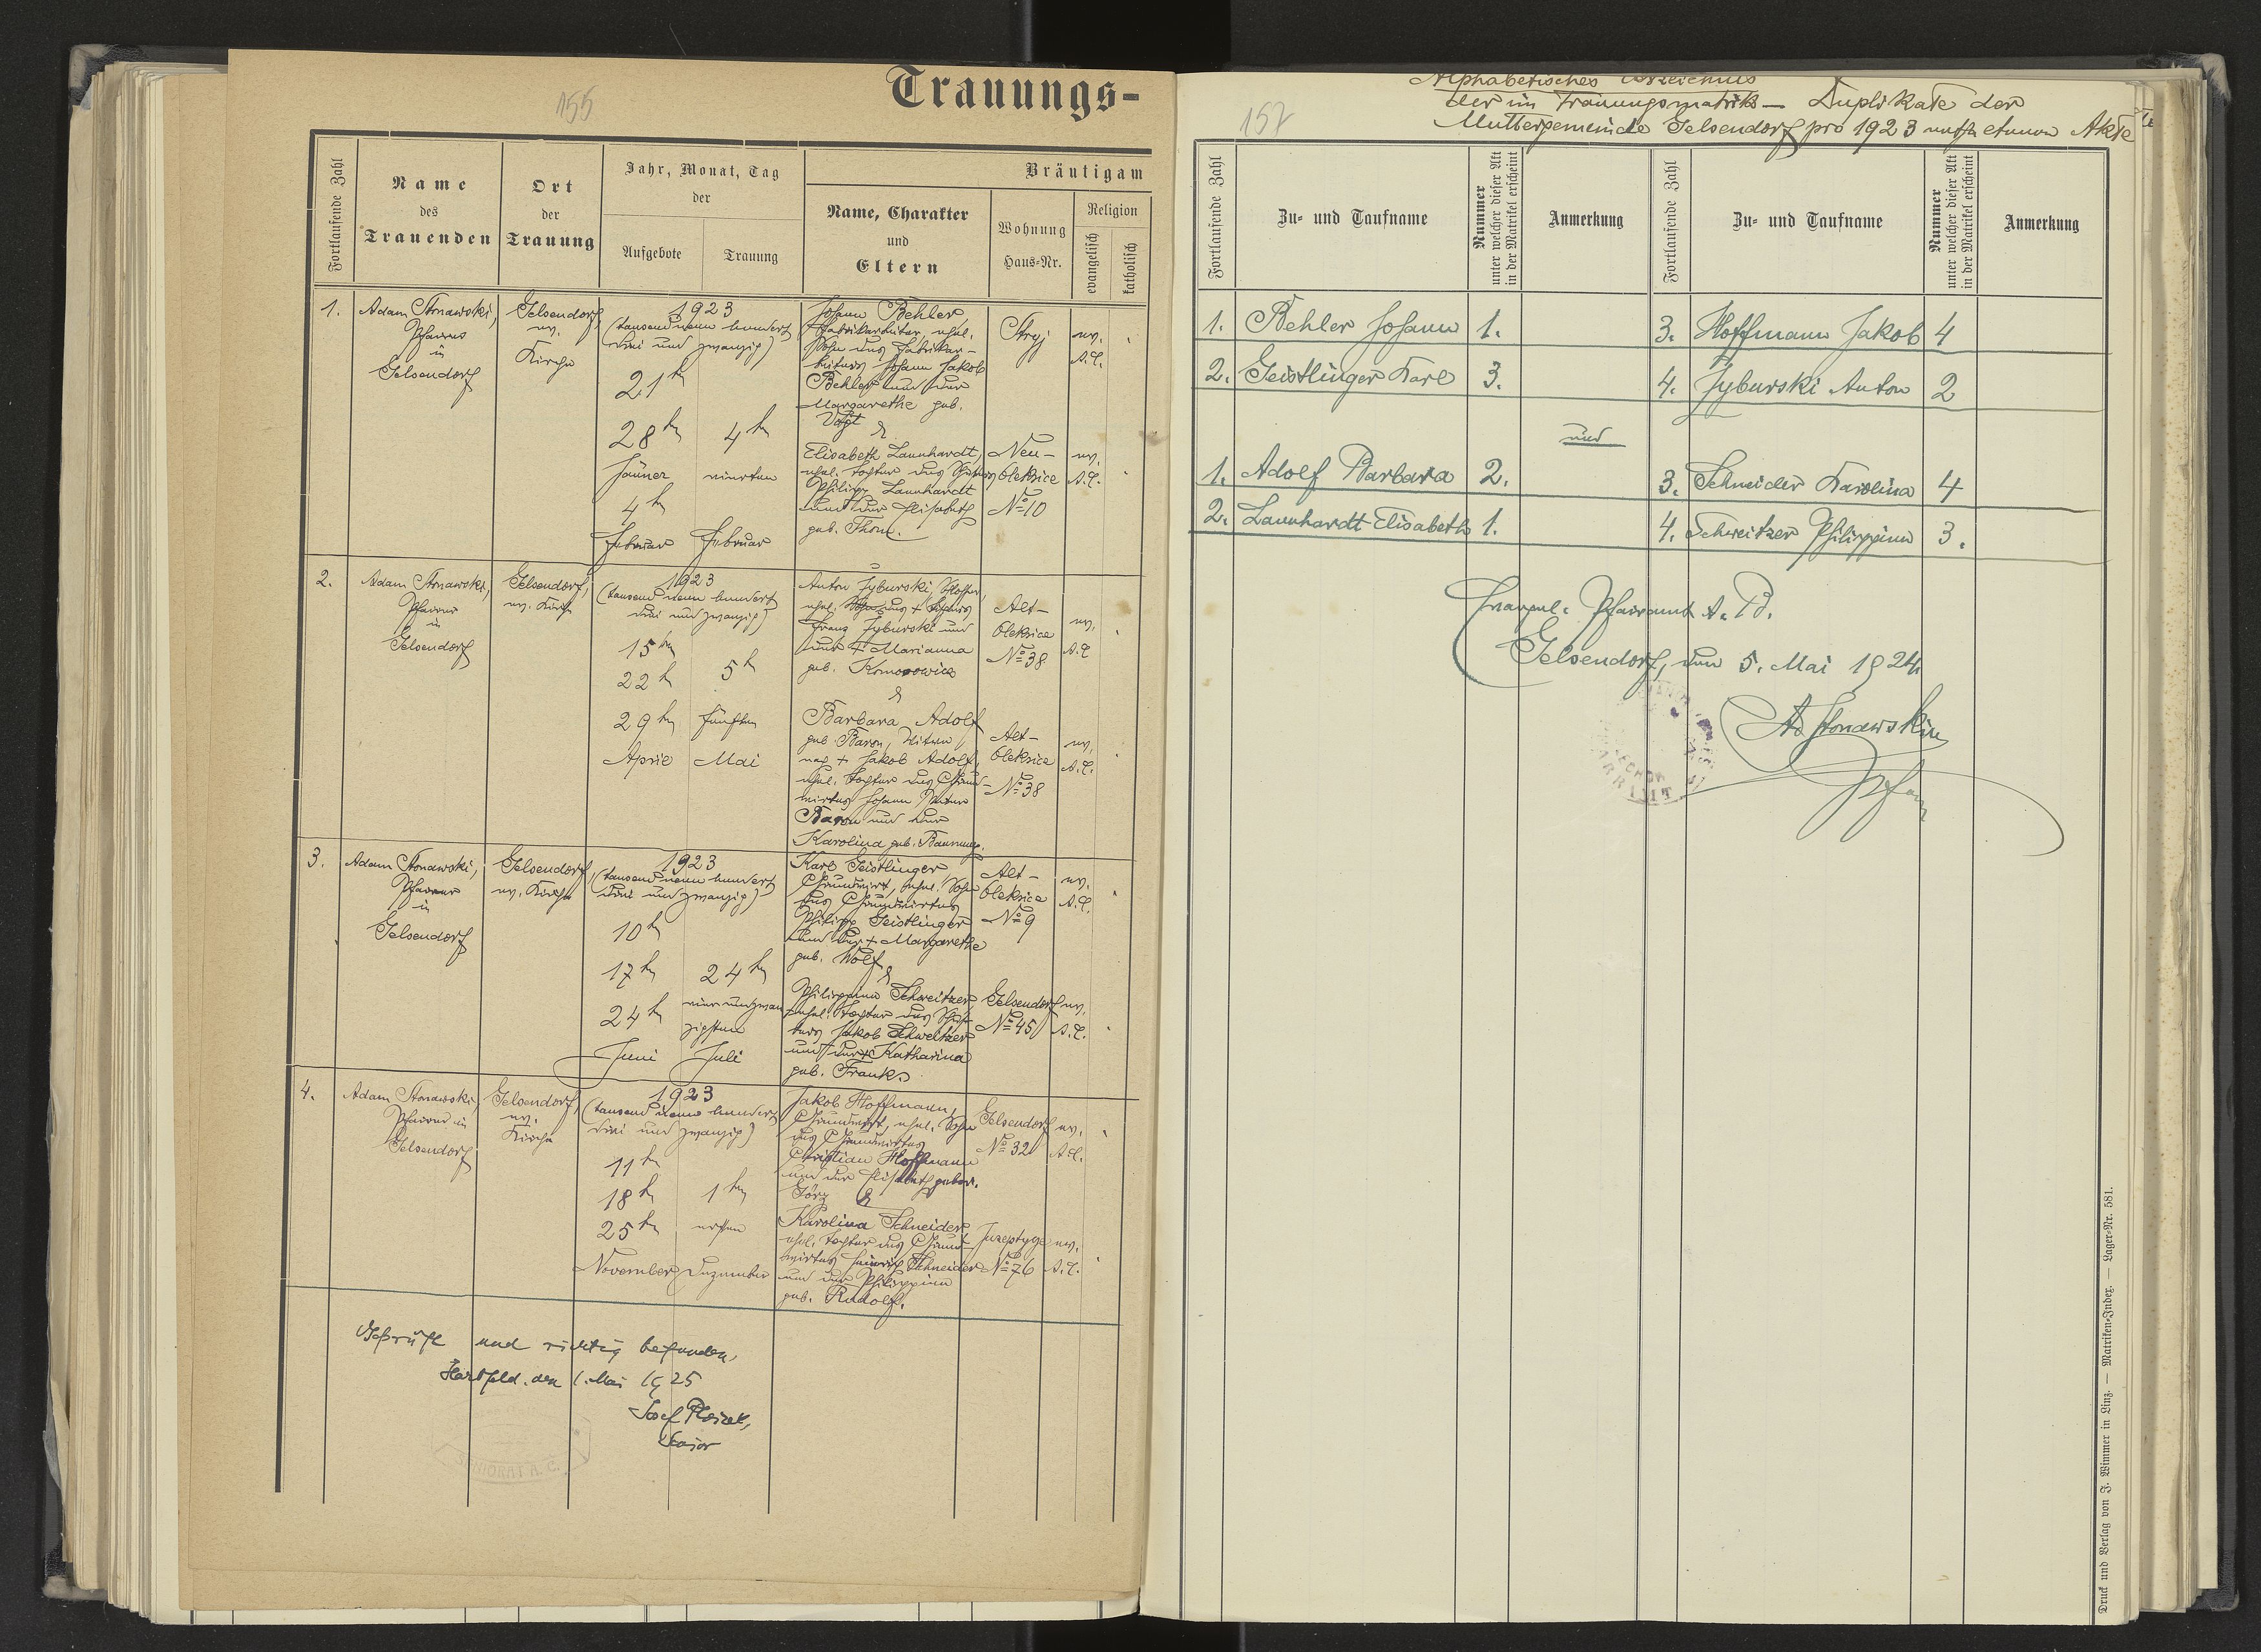 155
Trauungs-
Fortlaufende Zahl
Name
des
Trauenden
Ort
der
Trauung
Jahr, Monat, Tag
der
Aufgebote
Trauung
Bräutigam
Name, Charakter
und
Eltern
Wohnung
Haus-Nr.
Religion
evangelisch
katholisch
1.
Adam Stonawski,
Pfarrer
in
Gelsendorf
Gelsendorf,
ev.
Kirche
1923
(tausend neun hundert
drei und zwanzig)
21ten
28ten
Jänner
4ten
Februar
4ten
vierten
Februar
Johann Behler,
Fabrikarbeiter, ehel.
Sohn des Fabrikar-
beiters Johann Jakob
Behler und der
Margarethe geb.
Vogt
&
Elisabeth Launhardt,
ehel. Tochter des
Philipp Launhardt
und der Elisabeth
geb. Thom.
Stryj
ev.
A.C.
Neu-
Oleksice
No 10
ev.
A.C.
2.
Adam Stonawski,
Pfarrer
in
Gelsendorf
Gelsendorf,
ev. Kirche
1923
(tausend neun hundert
drei und zwanzig)
15ten
22ten
29ten
April
5ten
fünften
Mai
Anton Zyburski, Schlosser,
ehel. Sohn des +
Franz Zyburski und
der + Marianna
geb.
&
Barbara Adolf
geb. Baron, Witwe
nach + Jakob Adolf,
ehel. Tochter des Grund-
wirtes Johann Peter
Baron und der
Karolina geb.
Alt-
Oleksice
No 38
ev.
A.C.
Alt-
Oleksice
No 38
ev.
A.C.
3.
Adam Stonawski,
Pfarrer
in
Gelsendorf
Gelsendorf
ev. Kirche
1923
(tausend neun hundert
drei und zwanzig)
10ten
17ten
24ten
Juni
24ten
vierundzwan
zigsten
Juli
Karl Geistlinger
Grundwirt, ehel. Sohn
des Grundwirtes
Philipp Geistlinger
und der + Margarethe
geb. Wolf
&
Philippine Schweitzer,
ehel. Tochter des
Jakob Schweitzer
und der + Katharina
geb. Frank.
Alt-
Oleksice
No 9
ev.
A.C.
Gelsendorf
No 45
ev.
A.C.
4.
Adam Stonawski,
Pfarrer in
Gelsendorf
Gelsendorf,
ev.
Kirche
1923
(tausend neun hundert
drei und zwanzig)
11ten
18ten
25ten
November
1ten
ersten
Dezember
Jakob Hoffmann,
Grundwirt, ehel. Sohn
des Grundwirtes
Christian Hoffmann
und der Elisabeth gebor.
Görz &
Karolina Schneider
ehel. Tochter des Grund-
wirtes Heinrich Schneider
und der Philippine
geb. Rudolf.
Gelsendorf
No 32
ev.
A.C.
No 76
ev.
A.C.
Geprüft und richtig befunden,
Hartfeld, den 1. Mai 1925
Josef
Senior
SENIORAT A.C.
157
Alphabetisches Verzeichnis
der im Trauungsmatrik- Duplikate der
Muttergemeinde Gelsendorf pro 1923 enthaltenen Akte
Fortlaufende Zahl
Zu- und Taufname
Nummer
unter welcher dieser Akt
in der Matrikel erscheint
Anmerkung
Fortlaufende Zahl
Zu- und Taufname
Nummer
unter welcher dieser Akt
in der Matrikel erscheint
Anmerkung
1. Behler Johann 1.
3. Hoffmann Jakob 4
2. Geistlinger Karl 3.
4. Zyburski Anton 2
und
1. Adolf Barbara 2.
3. Schneider Karolina 4
2. Launhardt Elisabeth 1.
4. Schweitzer Philippine 3.
Evangel. Pfarramt A. B.
Gelsendorf, den 5. Mai 1924
Ad Stonawski
Druck und Verlag von J. Wimmer in Linz. — Matriken-Index. — Lager-Nr. 581.